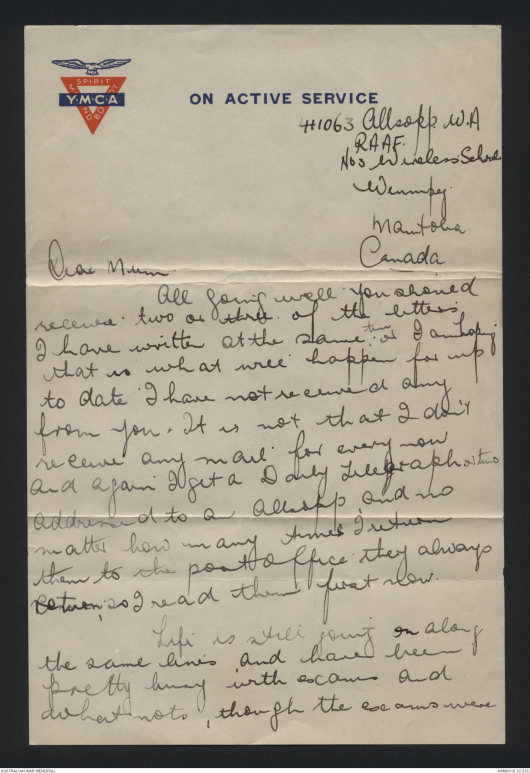 SPIRIT
Y·M·C·A
MIND BODY
ON ACTIVE SERVICE
411063 Allsopp. W.A
RAAF.
No 3 Wireless School
Winnipeg.
Manitoba.
Canada
Dear Mum.
All going well you should
receive two or three of the letters
I have written at the same time or I am hoping
that is what will happen for up
to date I have not received any
from you. It is not that I don't
receive any mail for every now
and again I get a Daily Telegraph or two
addressed to a Allsopp and no
matter how many times I return
them to the post office they always
return, so I read them first now.
Life is still going on along
the same lines and have been
pretty busy with exams and
what nots, though the exams were
AUSTRALIAN WAR MEMORIAL